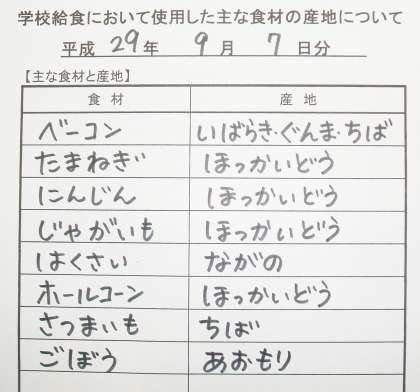 学校給食において使用した主な食材の産地について
平成 29 年 9 月 7 日分
【主な食材と産地】
食材 産地
ベーコン いばらき・ぐんま・ちば
たまねぎ ほっかいどう
にんじん ほっかいどう
じゃがいも ほっかいどう
はくさい ながの
ホールコーン ほっかいどう
さつまいも ちば
ごぼう あおもり